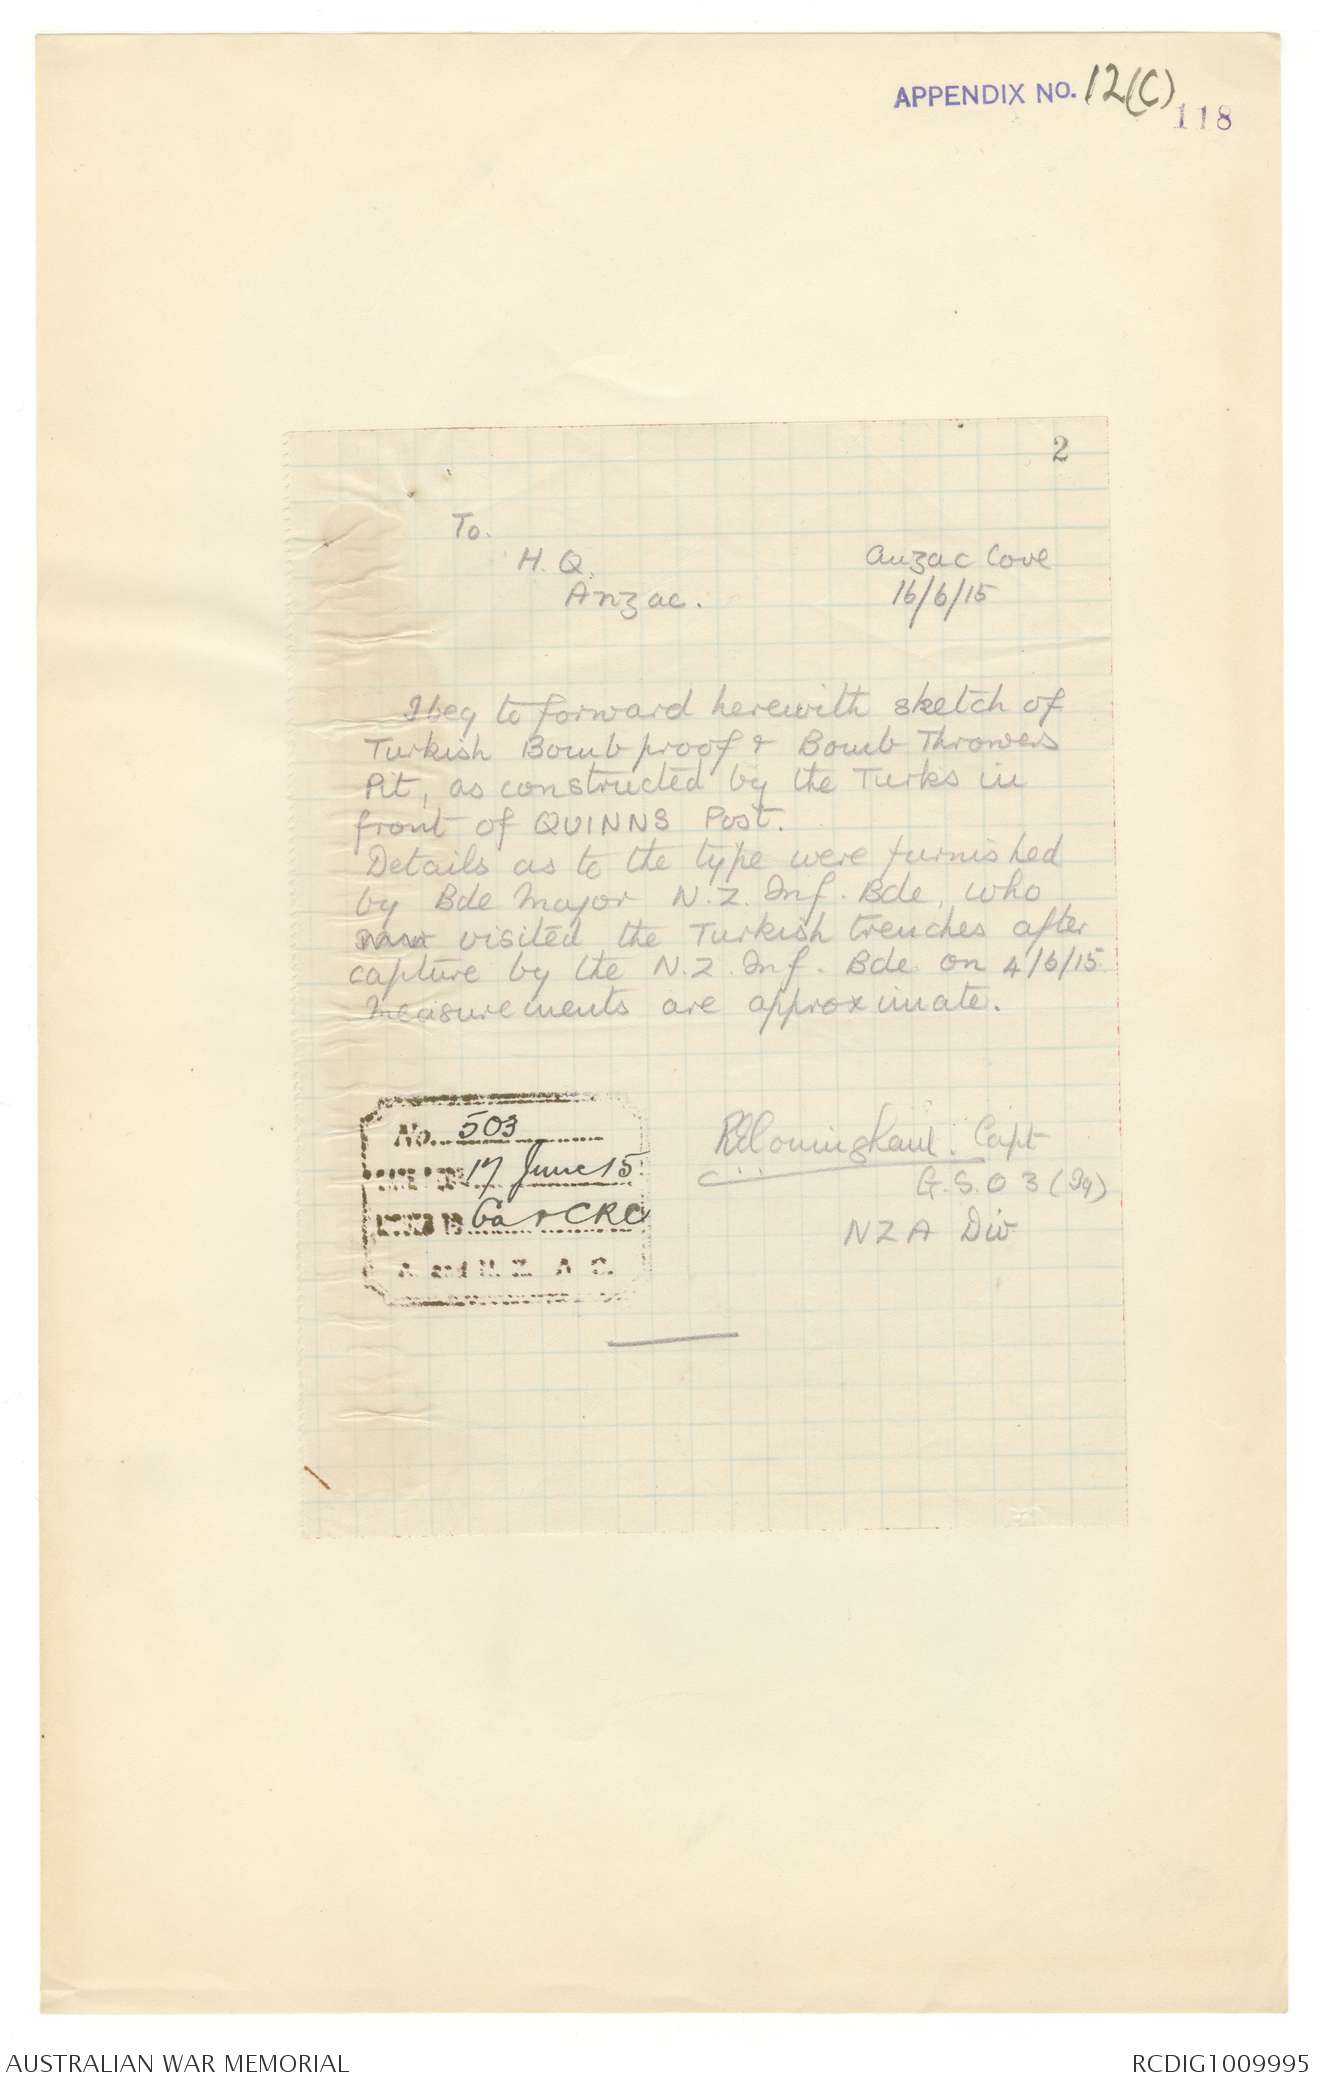 APPENDIX NO. 12(C)
118
2
To.
H. Q.
Anzac.
Anzac Cove
16/6/15
I beg to forward herewith sketch of
Turkish Bomb proof & Bomb Throwers
Pit, as constructed by the Turks in
front of QUINNS Post.
Details as to the type were furnished
by Bde Major N.Z. Inf. Bde, who
visited the Turkish trenches after
capture by the N.Z. Inf. Bde on 4/6/15
Measurements are approximate.
No. 503
17 June 15
Ga & CRE
A and N. Z. A. C.
Capt
G.S.O 3 (Ig)
NZA Div
AUSTRALIAN WAR MEMORIAL
RCDIG1009995